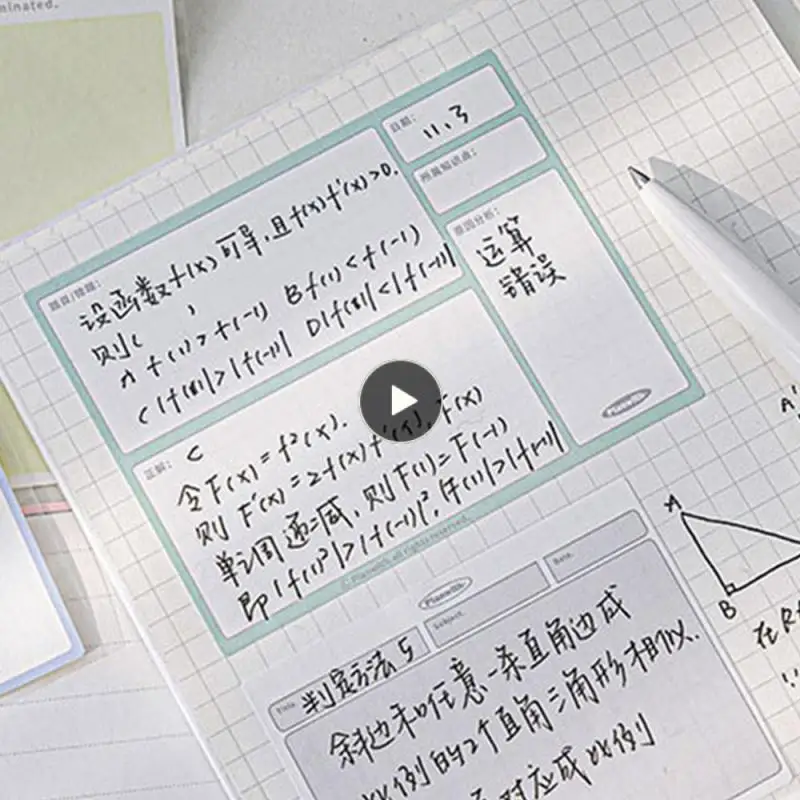 minated.
日期:
11.3
所属知识点:
原因分析:
运算
错误
Planwith
题目/错题:
设函数f(x)可导,且f(x)f'(x)>0.
则( )
A f(1)>f(-1) B f(1)<f(-1)
C |f(1)|>|f(-1)| D |f(1)|<|f(-1)|
正解:
C
令F(x)=f²(x).
则F'(x)=2f(x)f'(x),F(x)
单调递减,则F(1)=F(-1)
即|f(1)²|>|f(-1)|²,|f(1)|>|f(-1)|
© Planwith, all rights reserved.
Planwith
Title
判定方法5
Subject.
Date.
斜边和任意一条直角边成
比例的2个直角三角形相似.
对应成比例
A
B
A'
在R
∵